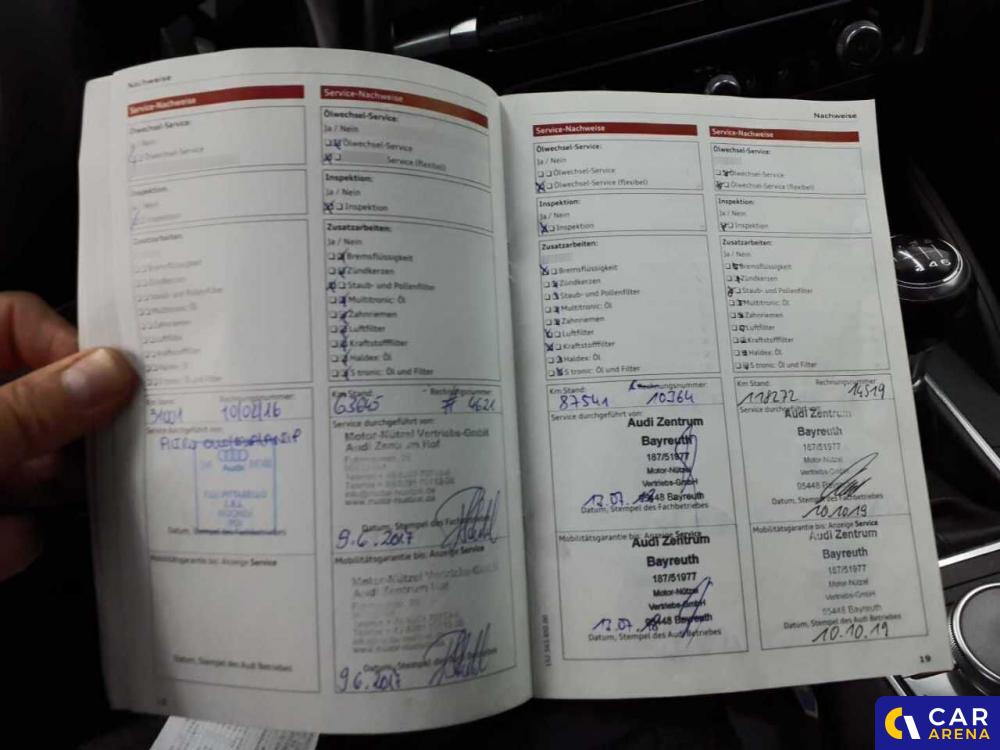 Nachweise
Service-Nachweis
Ölwechsel-Service:
Nein
Ölwechsel-Service
Inspektion:
Nein
Inspektion
Zusatzarbeiten:
Nein
Bremsflüssigkeit
Zündkerzen
Staub- und Pollenfilter
Multitronic: Öl
Zahnriemen
Luftfilter
Kraftstofffilter
Haldex: Öl
S tronic: Öl und Filter
Km Stand:
Rechnungsnummer:
31001 10/02/16
Service durchgeführt von:
Audi
Datum, Stempel des Fachbetriebes
Mobilitätsgarantie bis: Anzeige Service
Datum, Stempel des Audi Betriebes
Service-Nachweis
Ölwechsel-Service:
Ja / Nein
Ölwechsel-Service
Service (flexibel)
Inspektion:
Ja / Nein
Inspektion
Zusatzarbeiten:
Ja / Nein
Bremsflüssigkeit
Zündkerzen
Staub- und Pollenfilter
Multitronic: Öl
Zahnriemen
Luftfilter
Kraftstofffilter
Haldex: Öl
S tronic: Öl und Filter
Km Stand:
Rechnungsnummer:
# 4621
Service durchgeführt von:
Motor-Nützel Vertriebs-GmbH
Audi Zentrum Hof
9.6.2017
Datum, Stempel des Fachbetriebes
Mobilitätsgarantie bis: Anzeige Service
Motor-Nützel Vertriebs-GmbH
Audi Zentrum Hof
9.6.2017
Datum, Stempel des Audi Betriebes
Nachweise
Service-Nachweis
Ölwechsel-Service:
Ja / Nein
Ölwechsel-Service
Ölwechsel-Service (flexibel)
Inspektion:
Ja / Nein
Inspektion
Zusatzarbeiten:
Bremsflüssigkeit
Zündkerzen
Staub- und Pollenfilter
Multitronic: Öl
Zahnriemen
Luftfilter
Kraftstofffilter
Haldex: Öl
S tronic: Öl und Filter
Km Stand:
Rechnungsnummer:
87541 10364
Service durchgeführt von:
Audi Zentrum
Bayreuth
187/51977
Motor-Nützel
Vertriebs-GmbH
95448 Bayreuth
13.07.18
Datum, Stempel des Fachbetriebes
Mobilitätsgarantie bis: Anzeige Service
Audi Zentrum
Bayreuth
187/51977
Motor-Nützel
Vertriebs-GmbH
95448 Bayreuth
13.07.18
Datum, Stempel des Audi Betriebes
Service-Nachweis
Ölwechsel-Service:
Ölwechsel-Service
Ölwechsel-Service (flexibel)
Inspektion:
Ja / Nein
Inspektion
Zusatzarbeiten:
Ja / Nein
Bremsflüssigkeit
Zündkerzen
Staub- und Pollenfilter
Multitronic: Öl
Zahnriemen
Luftfilter
Kraftstofffilter
Haldex: Öl
S tronic: Öl und Filter
Km Stand:
Rechnungsnummer:
118272 14519
Service durchgeführt von:
Audi Zentrum
Bayreuth
187/51977
Motor-Nützel
Vertriebs-GmbH
95448 Bayreuth
Datum, Stempel des Fachbetriebes
10.10.19
Mobilitätsgarantie bis: Anzeige Service
Audi Zentrum
Bayreuth
187/51977
Motor-Nützel
Vertriebs-GmbH
95448 Bayreuth
Datum, Stempel des Audi Betriebes
10.10.19
19
CAR
ARENA